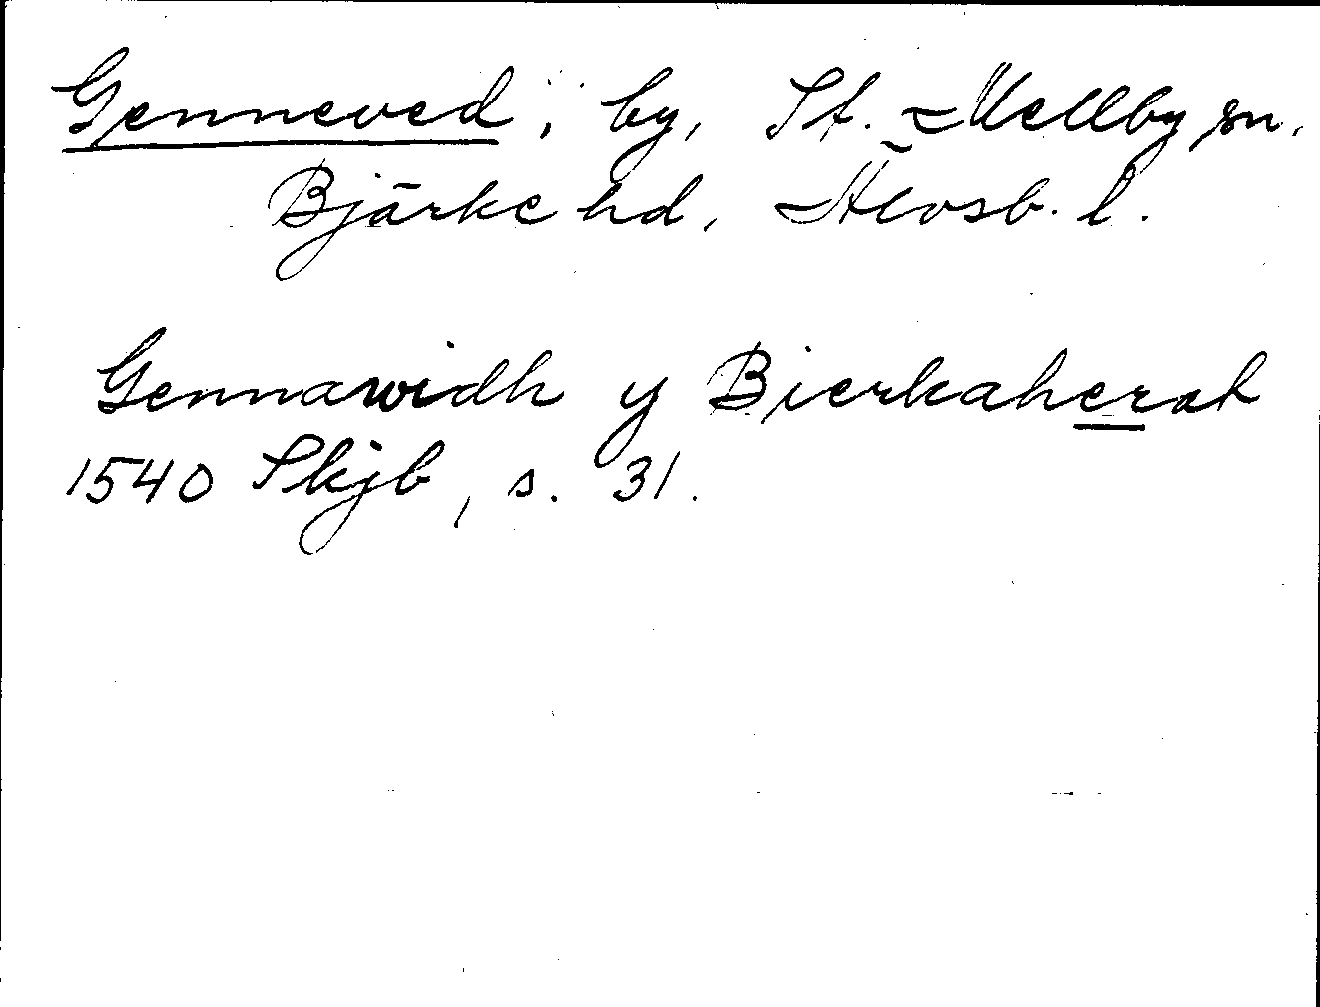 Genneved, by, St. Mellby sn.
Bjärke hd, Älvsb. l.
Gennawidh y Bierkaherat
1540 Skjb, s. 31.